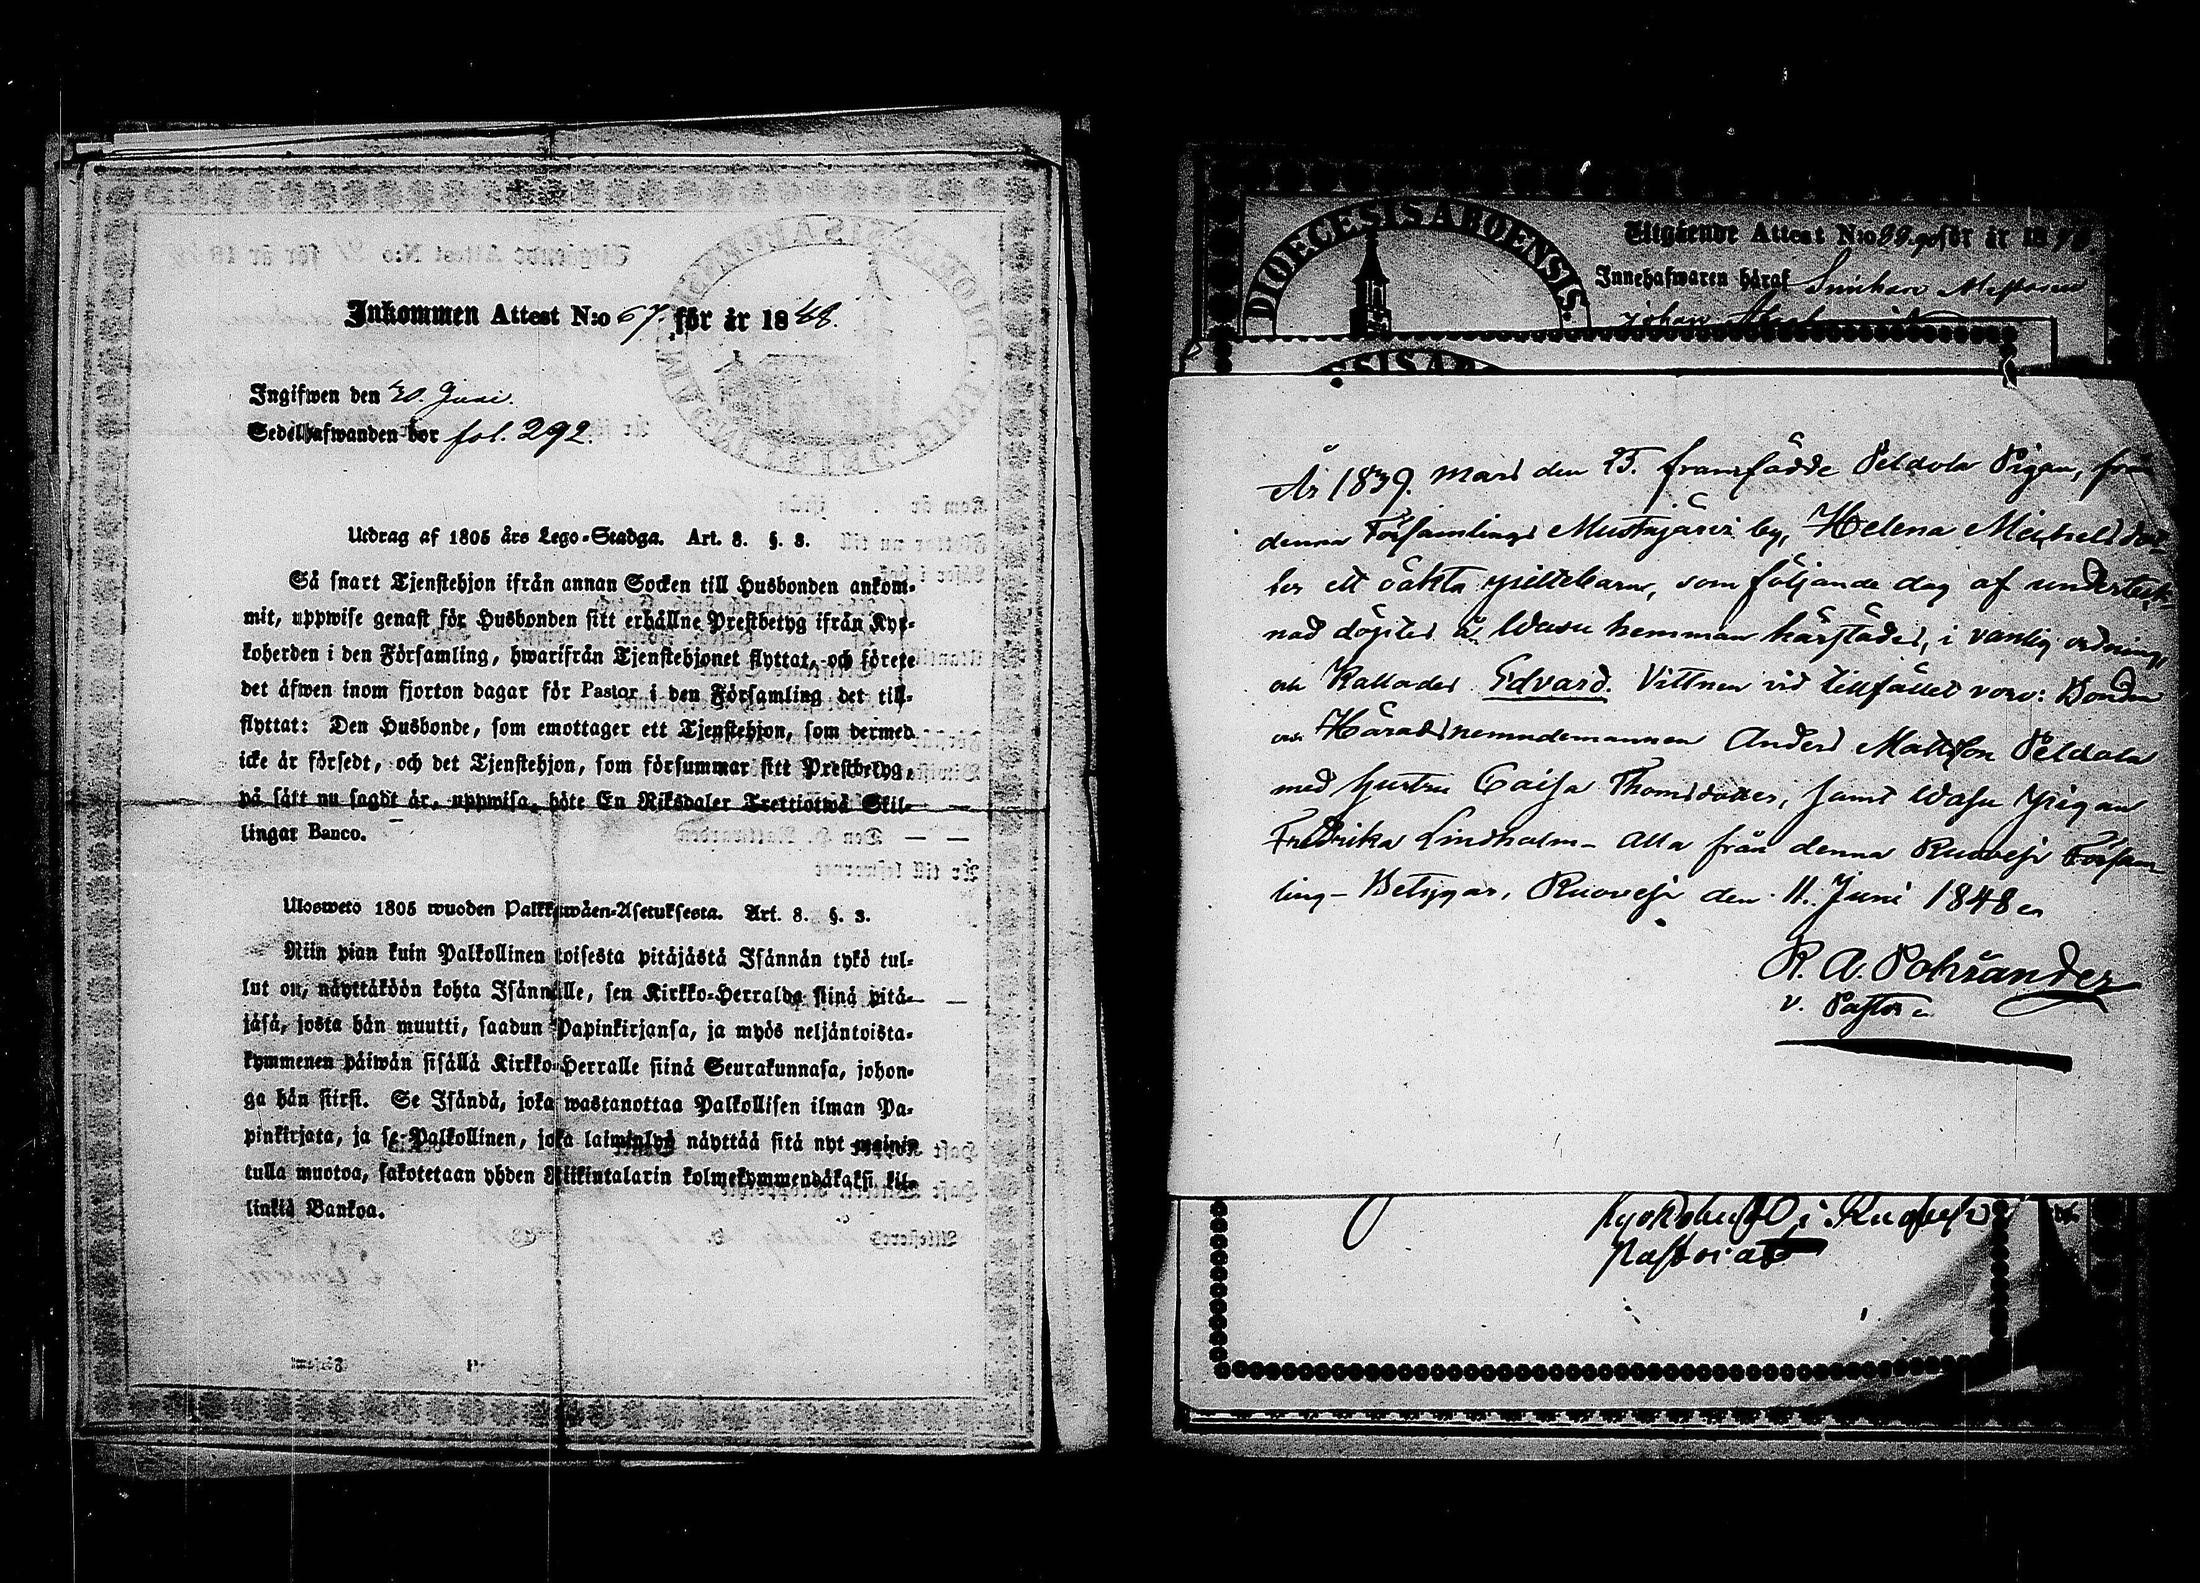 Inkommen Attest N:o 67. för år 1848.
Ingifwen den 30. Juni.
Sedelhafwanden bor fol. 292.
Utdrag af 1805 års Lego-Stadga. Art. 8. §. 3.
Så snart Tjenstehjon ifrån annan Socken till Husbonden ankom-
mit, uppwise genast för Husbonden sitt erhållne Prestbetyg ifrån Kyr-
koherden i den Församling, hwarifrån Tjenstehjonet flyttat, och förete
det äfwen inom fjorton dagar för Pastor i den Församling det till-
flyttat: Den Husbonde, som emottager ett Tjenstehjon, som dermed
icke är försedt, och det Tjenstehjon, som försummar sitt Prestbetyg,
på sätt nu sagdt är, uppwisa, böte En Riksdaler Trettiotwå Skil-
lingar Banco.
Ulosweto 1805 wuoden Palkkawäen-Asetuksesta. Art. 8. §. 3.
Niin pian kuin Palkollinen toisesta pitäjästä Isännän tykö tul-
lut on, näyttäköön kohta Isännälle, sen Kirkko-Herralda siinä pitä-
jäsä, josta hän muutti, saadun Papinkirjansa, ja myös neljäntoista-
kymmenen päiwän sisällä Kirkko-Herralle siinä Seurakunnasa, johon-
ga hän siirsi. Se Isändä, joka wastanottaa Palkollisen ilman Pa-
pinkirjata, ja se Palkollinen, joka laiminlyö näyttää sitä nyt mainit-
tulla muotoa, sakotetaan yhden Riikintalarin kolmekymmendäkaksi kil-
linkiä Bankoa.
DIOECESIS ABOENSIS.
Utgående Attest N:o 89. 90 för år 18
Innehafwaren häraf
Johan
År 1839. Mars den 25. framfödde Peldola Pigan, från
denna Församlings Mustajärvi by, Helena Michelsdot-
ter ett oäkta gossebarn, som följande dag af underteck-
nad döptes å Wasu hemman härstädes, i vanlig ordning,
och Kallades Edvard. Vittnen vid tillfället voro: Bonden
och Häradsnemndemannen Anders Mattsson Peldola
med hustru Caisa Thomsdotter, samt Wasu Pigan
Fredrika Lindholm - Alla från denna Ruovesi Försam-
ling - Betygar, Ruovesi den 11. Juni 1848
R. A. Pohränder
v. Pastor
i Ruovesi
Pastorat